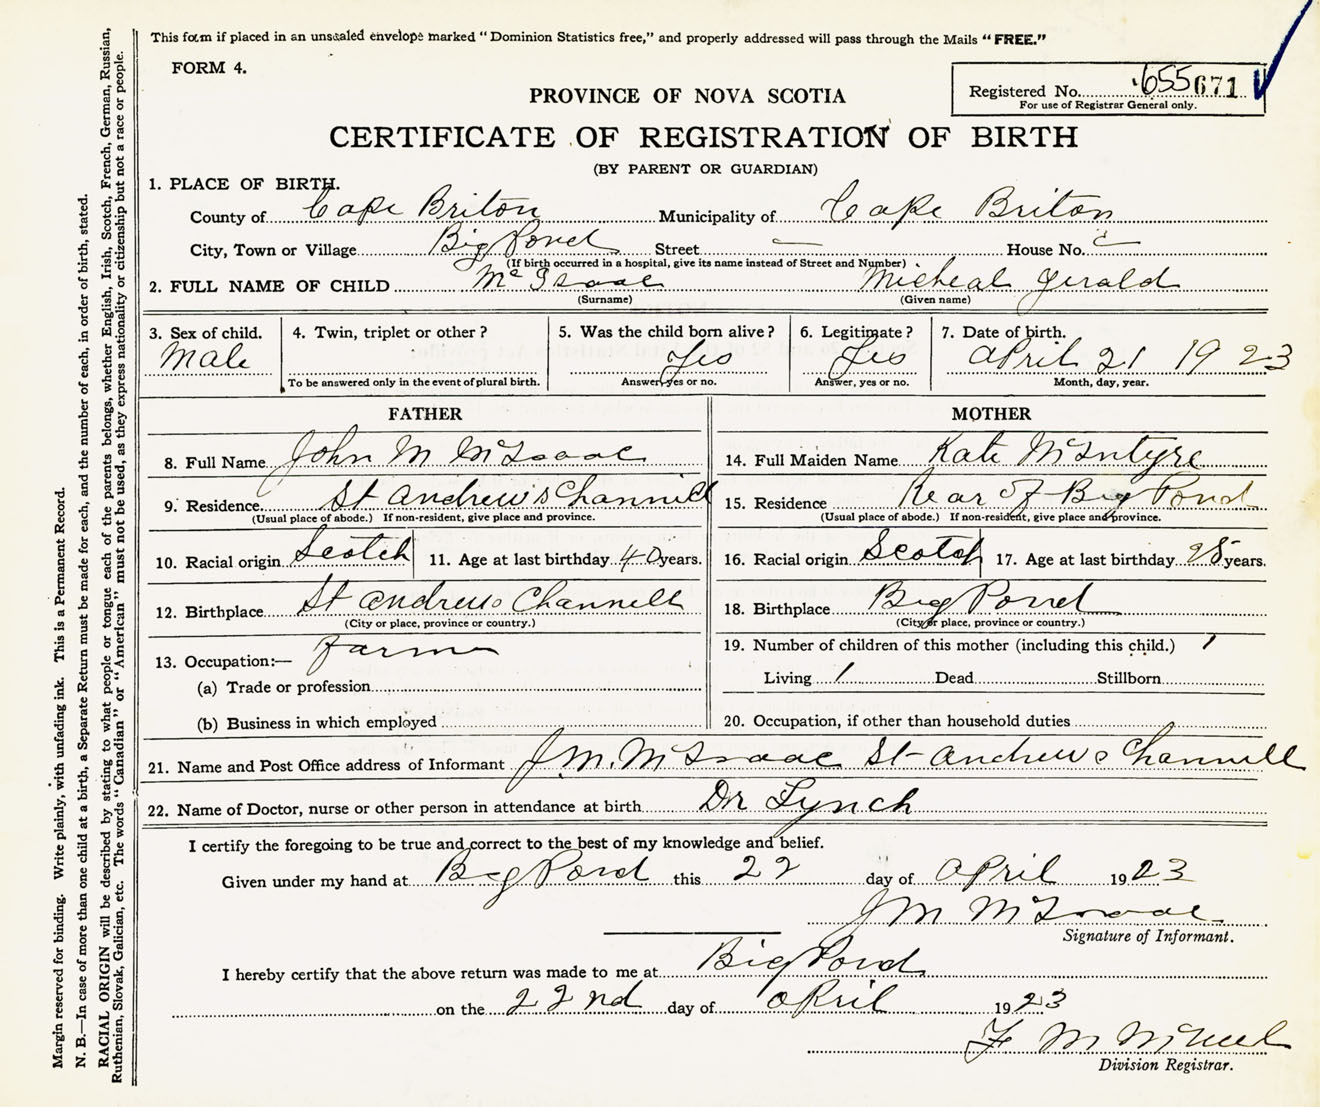 This form if placed in an unsealed envelope marked "Dominion Statistics free," and properly addressed will pass through the Mails "FREE."
FORM 4.
Registered No. 655671
For use of Registrar General only.
PROVINCE OF NOVA SCOTIA
CERTIFICATE OF REGISTRATION OF BIRTH
(BY PARENT OR GUARDIAN)
1. PLACE OF BIRTH.
County of Cape Briton Municipality of Cape Briton
City, Town or Village Big Pond Street — House No.
(If birth occurred in a hospital, give its name instead of Street and Number)
2. FULL NAME OF CHILD McIsaac Micheal Jerald
(Surname) (Given name)
3. Sex of child. 4. Twin, triplet or other? 5. Was the child born alive? 6. Legitimate? 7. Date of birth.
Male Yes Yes April 21 1923
To be answered only in the event of plural birth. Answer, yes or no. Answer, yes or no. Month, day, year.
FATHER MOTHER
8. Full Name John M McIsaac 14. Full Maiden Name Kate McIntyre
9. Residence St Andrew's Channell 15. Residence Rear of Big Pond
(Usual place of abode.) If non-resident, give place and province. (Usual place of abode.) If non-resident, give place and province.
10. Racial origin Scotch 11. Age at last birthday 40 years. 16. Racial origin Scotch 17. Age at last birthday 28 years.
12. Birthplace St Andrews Channell 18. Birthplace Big Pond
(City or place, province or country.) (City or place, province or country.)
13. Occupation:— Farmer 19. Number of children of this mother (including this child.) 1
(a) Trade or profession Living 1 Dead Stillborn
(b) Business in which employed 20. Occupation, if other than household duties
21. Name and Post Office address of Informant J.M. McIsaac St Andrews Channell
22. Name of Doctor, nurse or other person in attendance at birth Dr Lynch
I certify the foregoing to be true and correct to the best of my knowledge and belief.
Given under my hand at Big Pond this 22 day of April 1923
J M McIsaac
Signature of Informant.
I hereby certify that the above return was made to me at Big Pond
on the 22nd day of April 1923
F M
Division Registrar.
Margin reserved for binding. Write plainly, with unfading ink. This is a Permanent Record.
N. B.—In case of more than one child at a birth, a Separate Return must be made for each, and the number of each, in order of birth, stated.
RACIAL ORIGIN will be described by stating to what people or tongue each of the parents belongs, whether English, Irish, Scotch, French, German, Russian,
Ruthenian, Slovak, Galician, etc. The words "Canadian" or "American" must not be used, as they express nationality or citizenship but not a race or people.